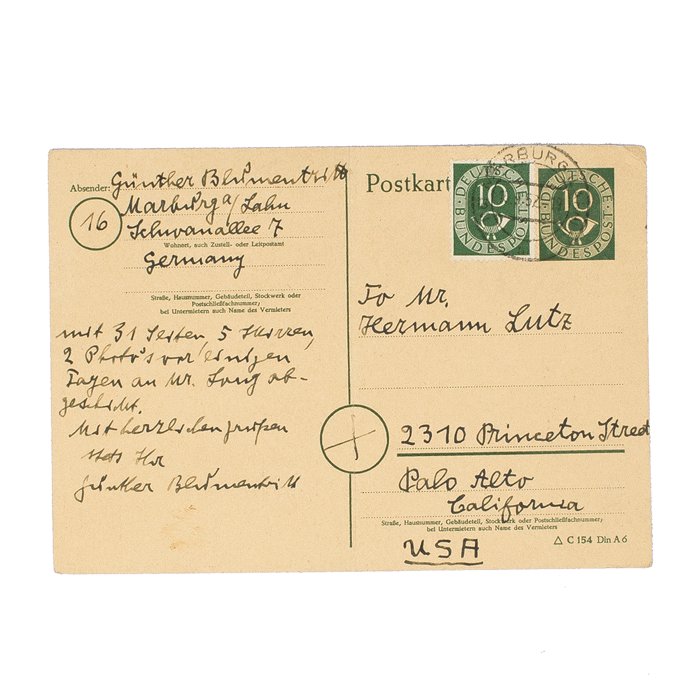 Absender: Günther Blumentritt
16
Marburg a/Lahn
Schwanallee 7
Wohnort, auch Zustell- oder Leitpostamt
Germany
Straße, Hausnummer, Gebäudeteil, Stockwerk oder
Postschließfachnummer;
bei Untermietern auch Name des Vermieters
mit 31 Seiten, 5 Skizzen,
2 Photo's vor einigen
Tagen an Mr. Long ab-
geschickt.
Mit herzlichen Grüßen
stets Ihr
Günther Blumentritt
Postkart
DEUTSCHE BUNDESPOST
10
DEUTSCHE BUNDESPOST
10
MARBURG
To Mr.
Hermann Lutz
2310 Princeton Street
Palo Alto
California
Straße, Hausnummer, Gebäudeteil, Stockwerk oder Postschließfachnummer;
bei Untermietern auch Name des Vermieters
USA
C 154 Din A 6